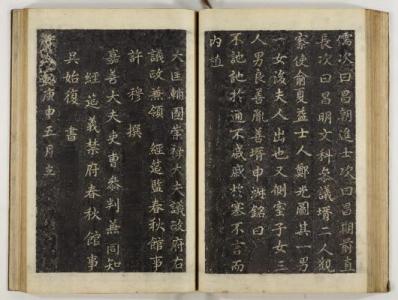 儒次曰昌朝進士次曰昌期前直
長次曰昌明文科參議壻二人觀
察使俞夏益士人鄭光圖其一男
一女後夫人出也又側室子女三
人男良善胤善壻申　銘曰
不訑訑於通不戚戚於塞不言而
內植
大匡輔國崇祿大夫議政府右
議政兼領　經筵監春秋館事
許穆　撰
嘉善大夫吏曹參判兼同知
經筵義禁府春秋館事
吳始復　書
庚申五月立